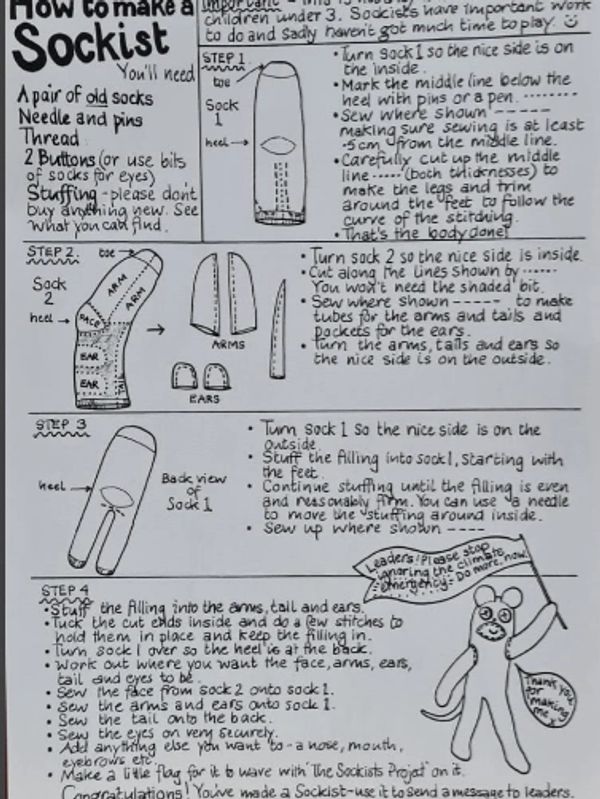 How to make a
Sockist
You'll need
A pair of old socks
Needle and pins
Thread
2 Buttons (or use bits
of socks for eyes)
Stuffing - please don't
buy anything new. See
what you can find.
Important -
children under 3. Sockists have important work
to do and sadly haven't got much time to play.
STEP 1
toe
Sock
1
heel
• Turn sock 1 so the nice side is on
the inside.
• Mark the middle line below the
heel with pins or a pen. ........
• Sew where shown -----
making sure sewing is at least
.5cm from the middle line.
• Carefully cut up the middle
line ..... (both thicknesses) to
make the legs and trim
around the feet to follow the
curve of the stitching.
• That's the body done!
STEP 2.
toe
Sock
2
heel
ARM
ARM
FACE
EAR
EAR
TAIL
ARMS
EARS
• Turn sock 2 so the nice side is inside.
• Cut along the lines shown by ......
You won't need the shaded bit.
• Sew where shown ----- to make
tubes for the arms and tails and
pockets for the ears.
• Turn the arms, tails and ears so
the nice side is on the outside.
STEP 3
heel
Back view
of
Sock 1
• Turn sock 1 so the nice side is on the
outside
• Stuff the filling into sock 1, starting with
the feet.
• Continue stuffing until the filling is even
and reasonably firm. You can use a needle
to move the stuffing around inside.
• Sew up where shown ----
Leaders! Please stop
ignoring the climate
emergency. Do more, now!
STEP 4
• Stuff the filling into the arms, tail and ears.
• Tuck the cut ends inside and do a few stitches to
hold them in place and keep the filling in.
• Turn sock 1 over so the heel is at the back.
• Work out where you want the face, arms, ears,
tail and eyes to be.
• Sew the face from sock 2 onto sock 1.
• Sew the arms and ears onto sock 1.
• Sew the tail onto the back.
• Sew the eyes on very securely.
• Add anything else you want to - a nose, mouth,
eyebrows etc.
• Make a little flag for it to wave with 'The Sockists Project' on it.
Congratulations! You've made a Sockist - use it to send a message to leaders.
Thank you
for
making
me x